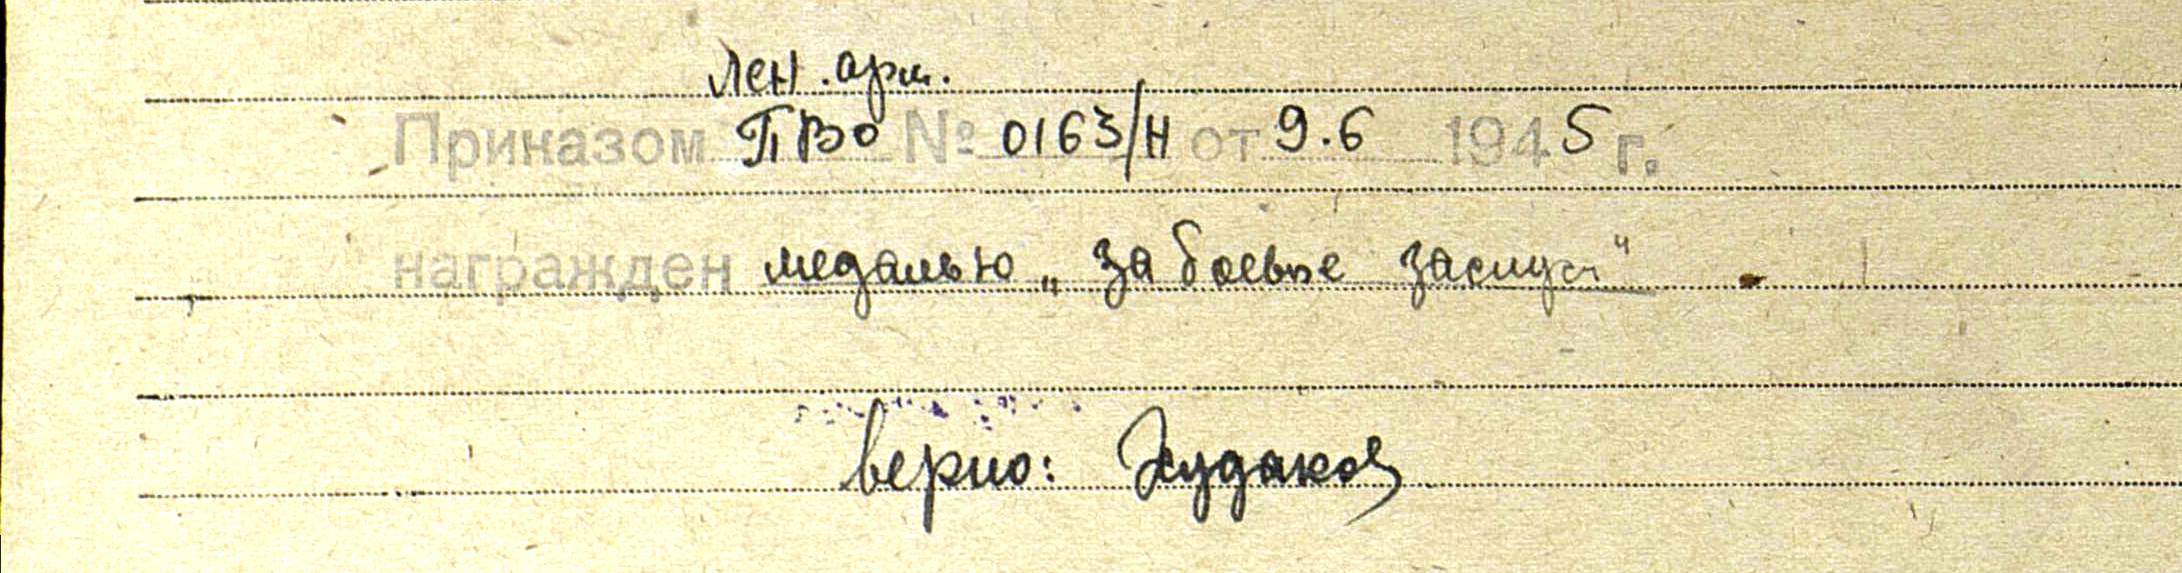 Лен. арм.
Приказом ПВО № 0163/н от 9.6 1945 г.
награжден медалью „за боевые заслуги"
верно: Худаков